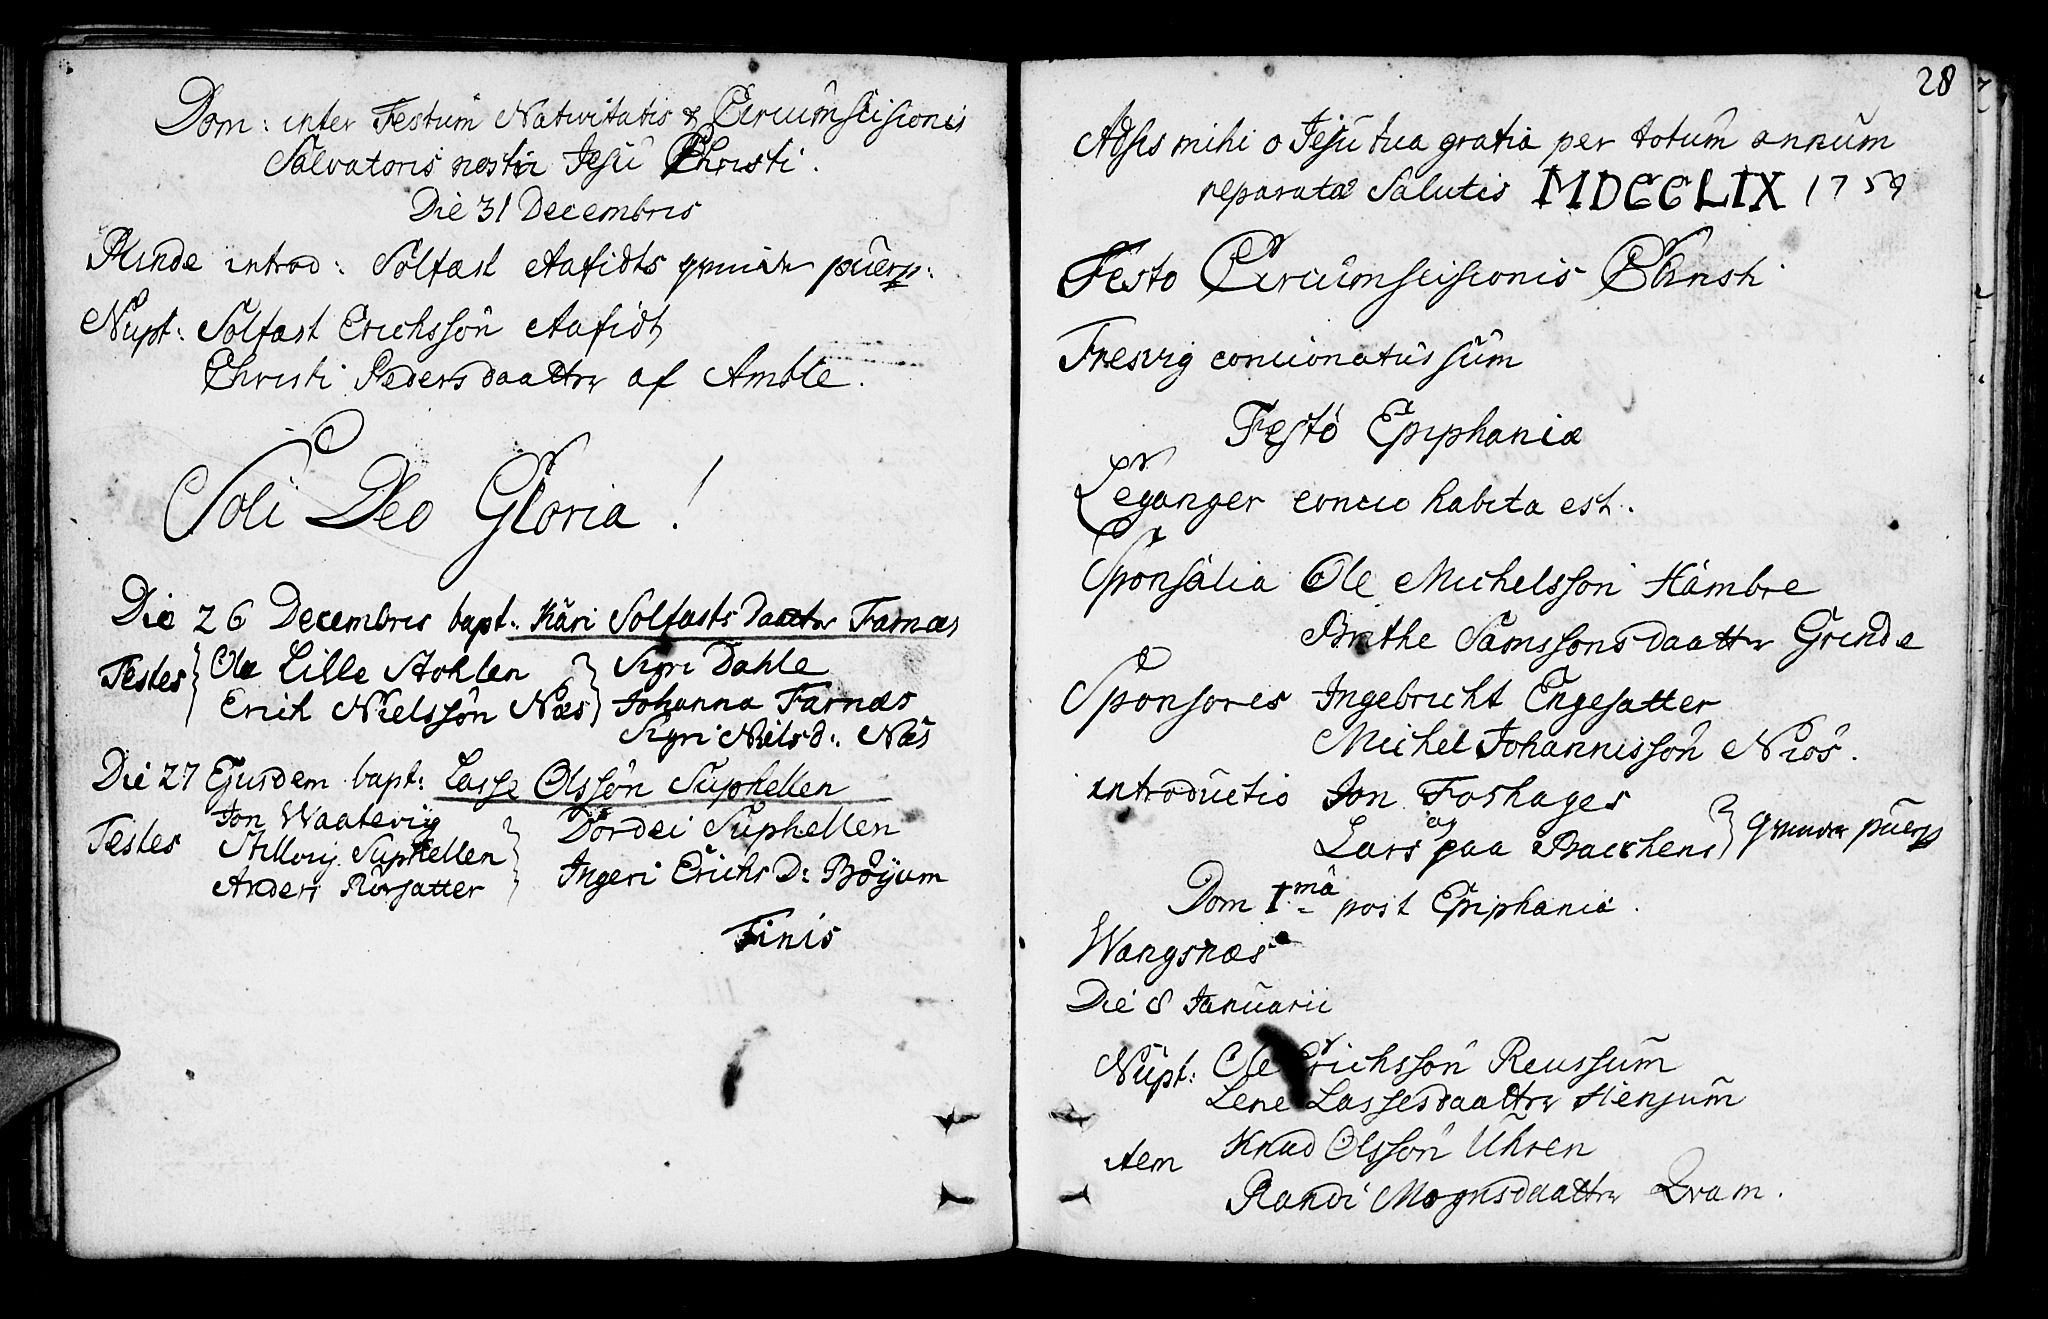 Dom: inter Festum Nativitatis & Circumscisionis
Salvatoris nostri Jesu Christi.
Die 31 Decembris
Rinde introd: Solfast Aafidts puerp:
Nupt: Solfast Erichssøn Aafidt
Christi Pedersdaatter af Amble.
Soli Deo Gloria!
Die 26 Decembris bapt: Kari Solfastsdaatter Farnæs
Testes Ole Lille Stohlen
Erich Nielssøn Næs
Sigri Dahle
Johanna Farnæs
Sigri Nielsd: Næs
Die 27 Ejusdem bapt: Lasse Olssøn Suphellen
Testes Jon Waatevig
Suphellen
Anders Rørsatter
Dordei Suphellen
Ingeri Erichs D: Bøyum
Finis
28
Adsis mihi o Jesu tua gratia per totum annum
reparatæ Salutis MDCCLIX 1759
Festo Circumscisionis Christi
Fresvig concionatus sum
Festo Epiphaniæ
Leganger concio habita est.
Sponsalia Ole Michelssøn Hambre
Brithe Samssonsdaatter Grinde
Sponsores Ingebricht Engesatter
Michel Johannissøn Niøs.
introductio Jon Foshages
og
Lars paa Bacchens puerp
Dom I.ma post Epiphania.
Wangsnæs
Die 8 Januarii
Nupt: Ole Erichssøn Reussum
Lene Lassesdaatter Hiensum
item Knud Olssøn Uhren
Randi Mognsdaatter Qvam.